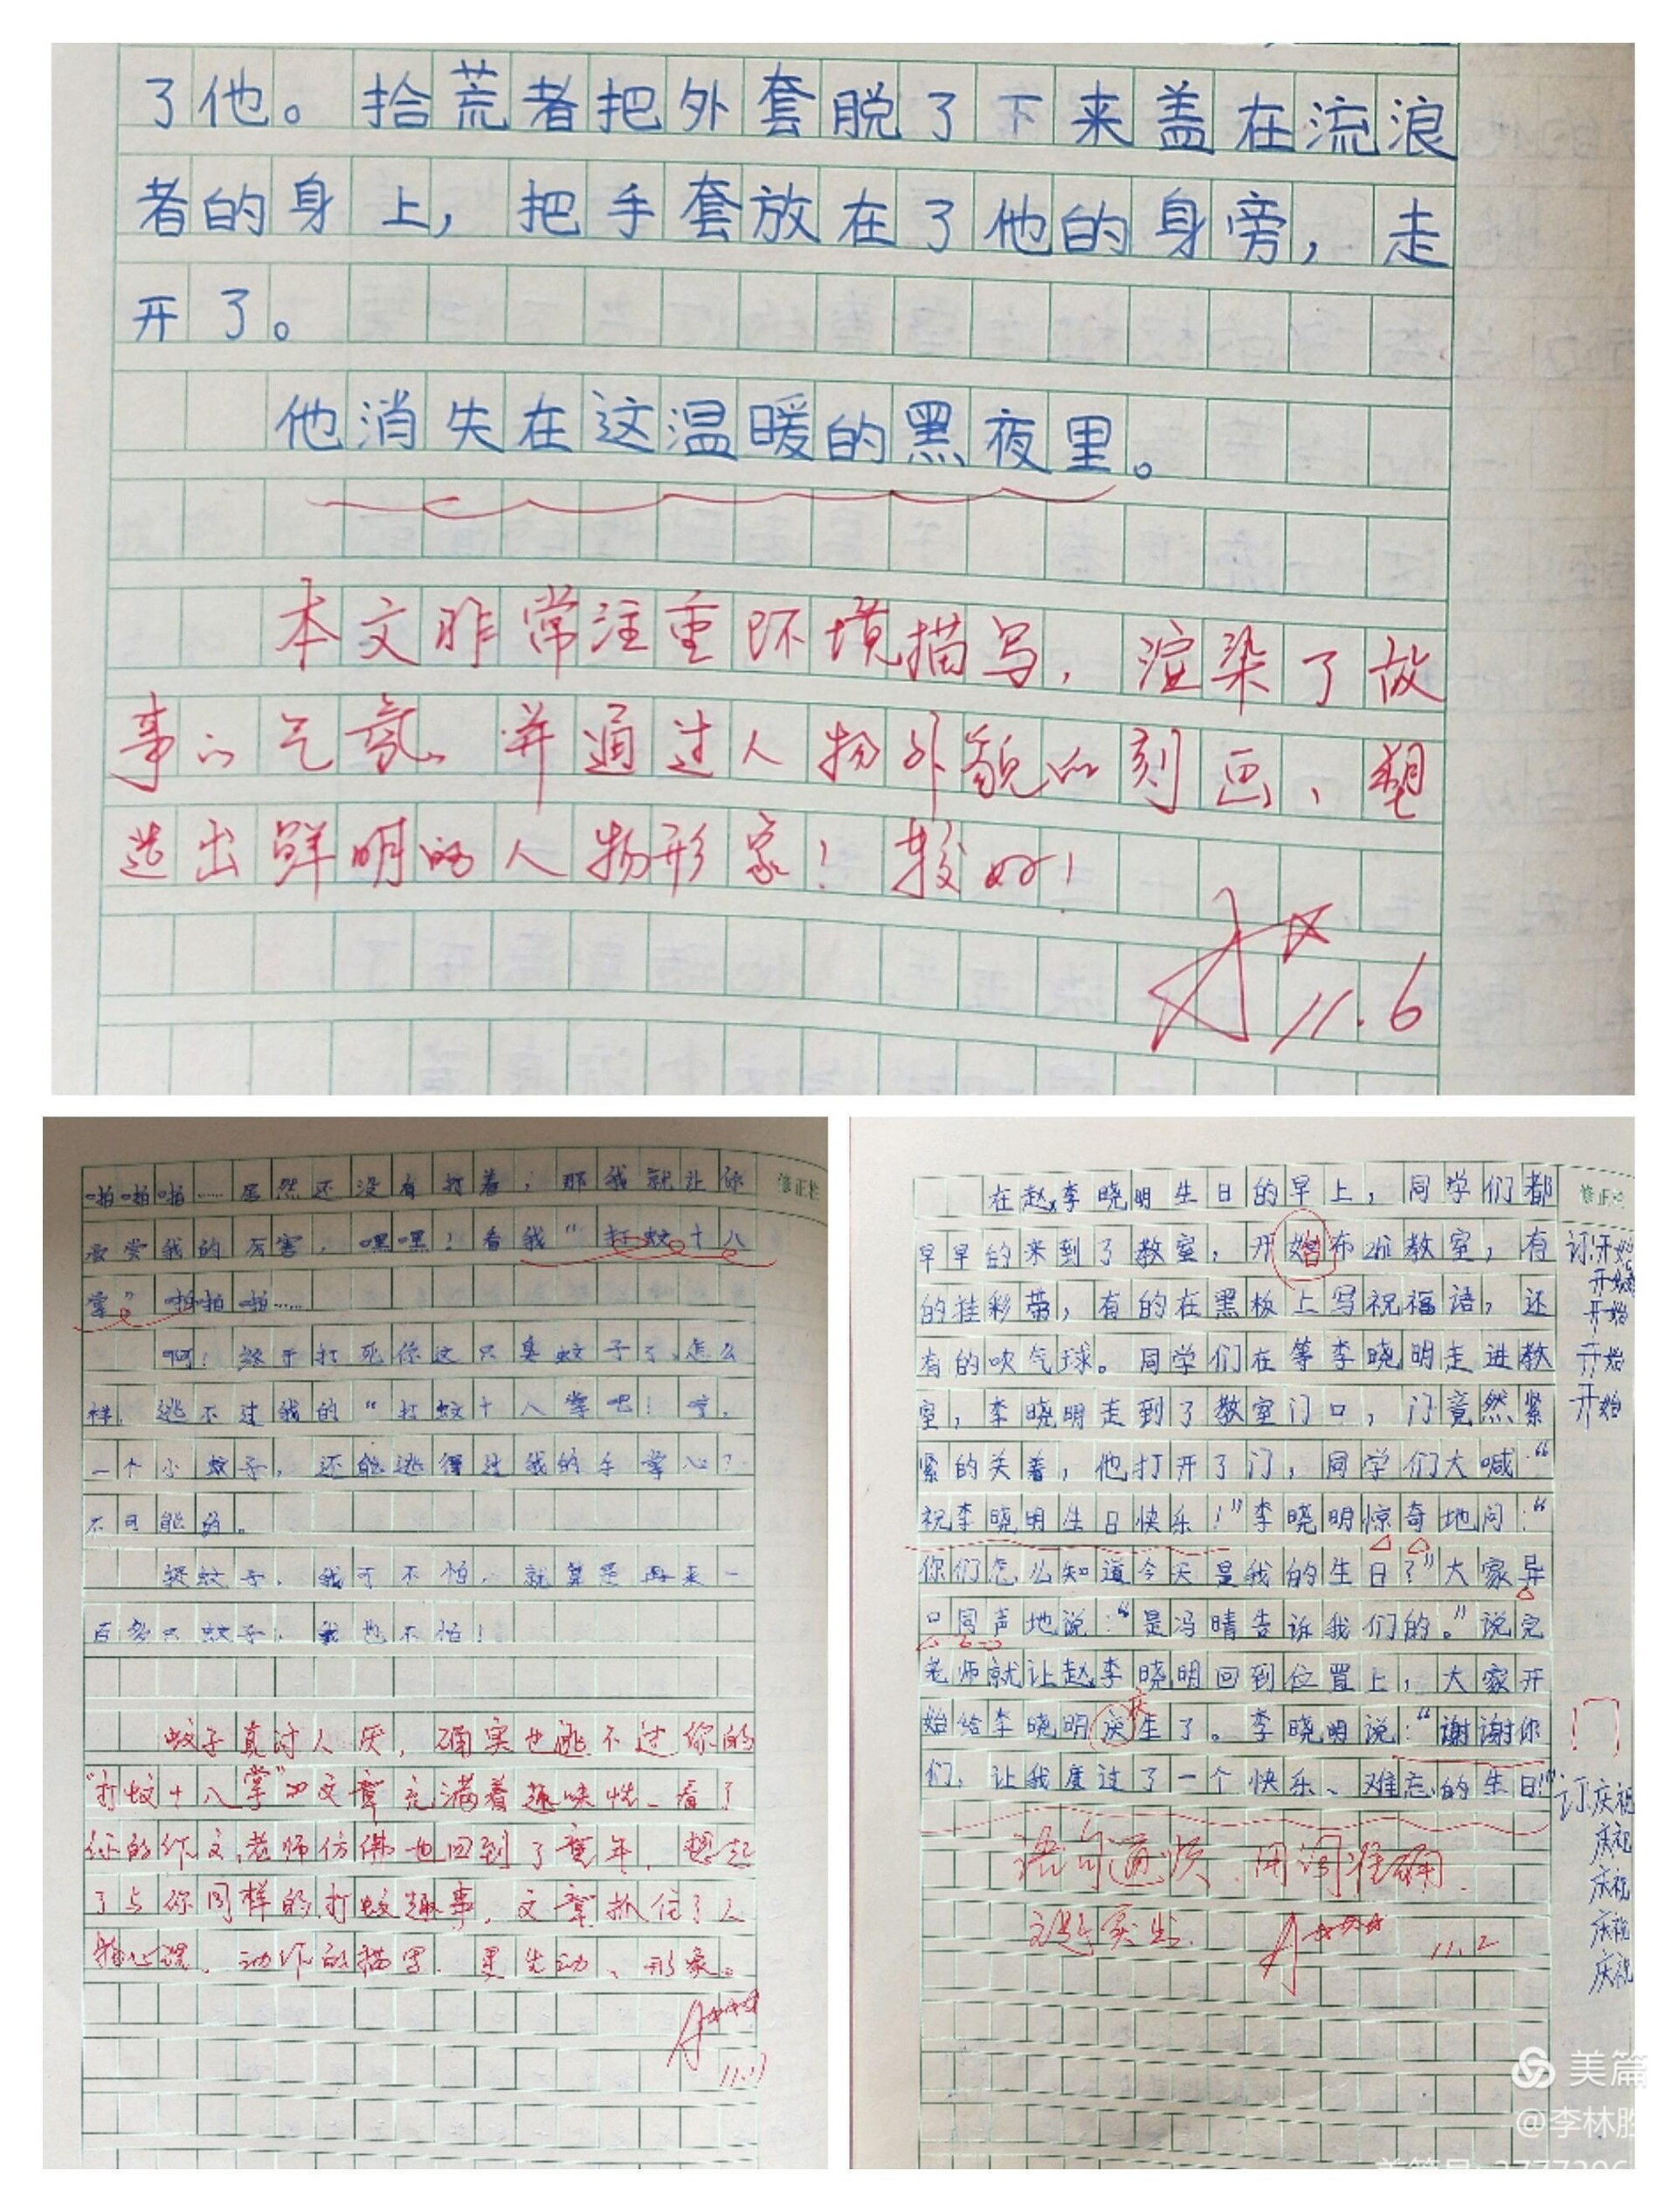 了他。拾荒者把外套脱了下来盖在流浪
者的身上，把手套放在了他的身旁，走
开了。
他消失在这温暖的黑夜里。
本文非常注重环境描写，渲染了故
事的气氛、并通过人物外貌的刻画、塑
造出鲜明的人物形象！较好！
11.6
啪啪啪……居然还没有打着，那我就让你
尝尝我的厉害，嘿嘿！看我“打蚊十八
掌”啪啪啪……
啊！终于打死你这只臭蚊子了、怎么
样，逃不过我的“打蚊十八掌吧！哼，
一个小蚊子，还能逃得过我的手掌心？
不可能的。
捉蚊子，我可不怕，就算是再来一
百多只蚊子，我也不怕！
蚊子真讨人厌，确实也逃不过你的
“打蚊十八掌”文章充满着趣味性、看了
你的作文，老师仿佛也回到了童年，想起
了与你同样的打蚊趣事，文章抓住了人
物心理、动作的描写，更生动、形象。
A
11.17
修正栏
在赵李晓明生日的早上，同学们都
早早的来到了教室，开始布置教室，有
的挂彩带，有的在黑板上写祝福语，还
有的吹气球。同学们在等李晓明走进教
室，李晓明走到了教室门口，门竟然紧
紧的关着，他打开了门，同学们大喊：“
祝李晓明生日快乐！”李晓明惊奇地问：“
你们怎么知道今天是我的生日？”大家异
口同声地说：“是冯晴告诉我们的。”说完
老师就让赵李晓明回到位置上，大家开
始给李晓明庆生了。李晓明说：“谢谢你
们，让我度过了一个快乐、难忘的生日！”
语句通顺、用词准确
主题突出.
A
11.2
修正
订：开始
开始
开始
开始
开始
订：庆祝
庆祝
庆祝
庆祝
庆祝
美篇
@李林胜